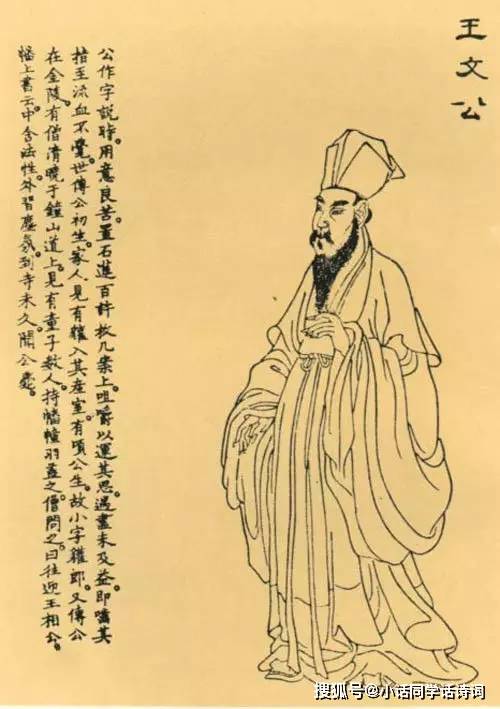 王文公
公作字説時。用意良苦。置石蓮百許枚几案上。咀嚼以運其思。遇盡未及益。即嚙其
指至流血不覺。世傳公初生。家人見有貛入其産室。有頃公生。故小字貛郎。又傳公
在金陵。有僧清曉于鐘山道上。見有童子數人。持幡幢羽蓋之。僧問之曰往迎王相公。
幡上書云中含法性。外習塵氛。到寺未久。聞公薨。
搜狐号@小话同学话诗词